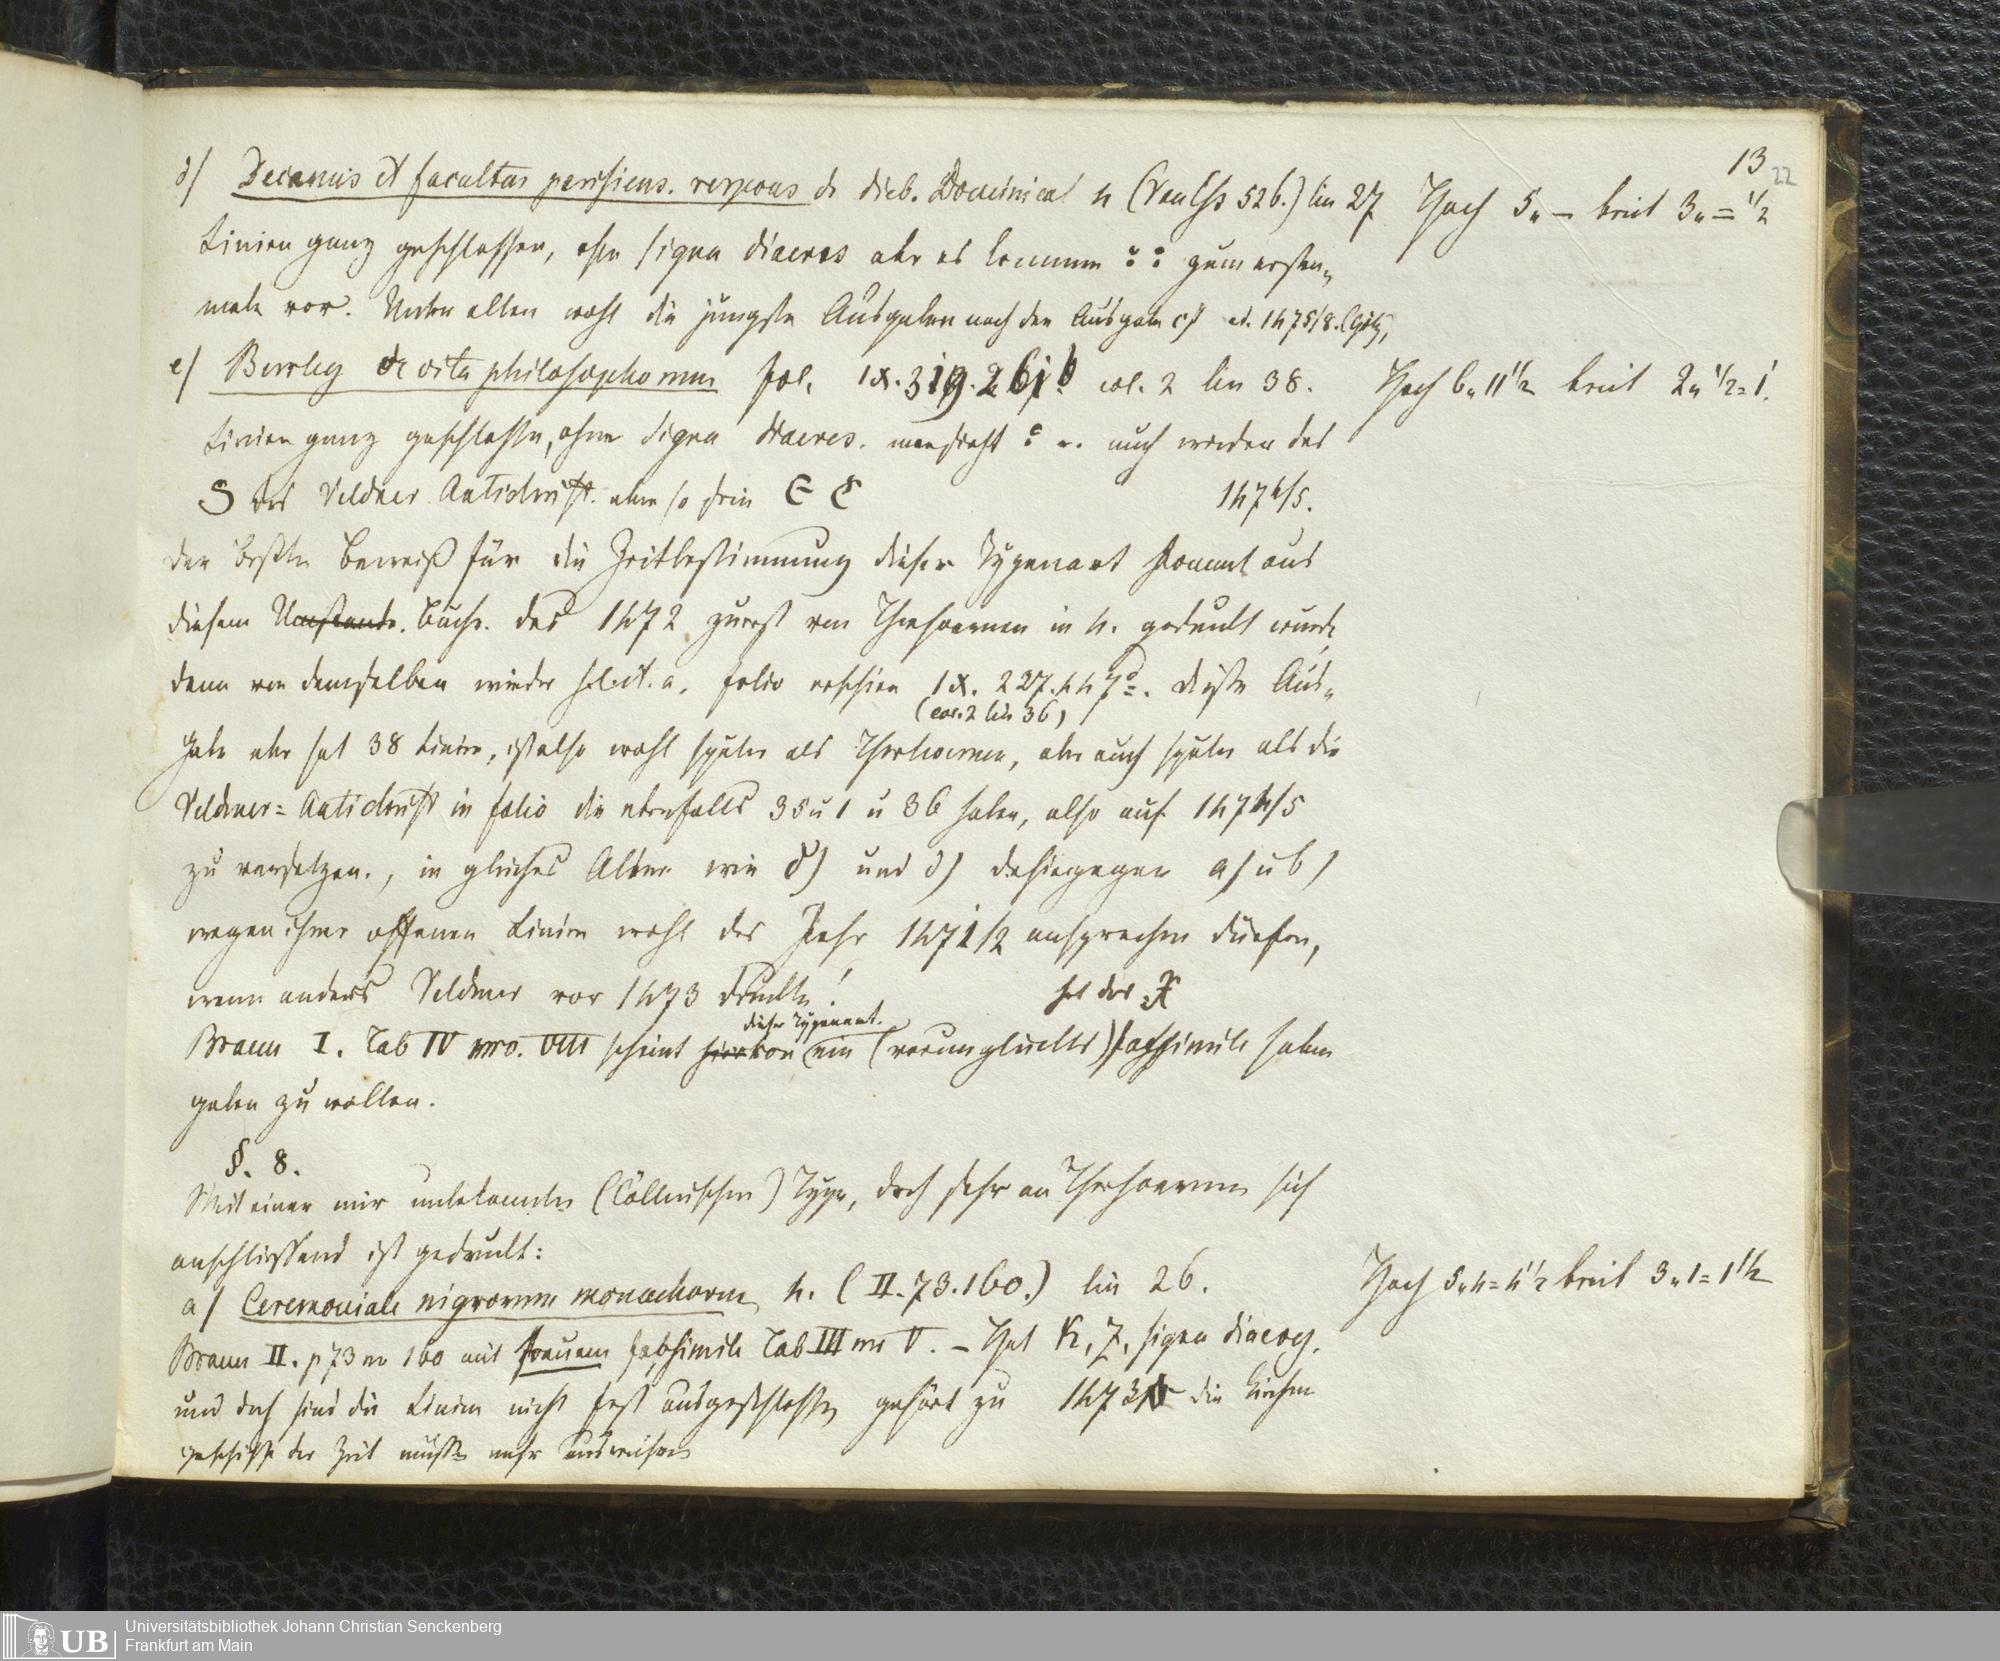 13
22
d) Decanus et facultas parisiens. respons de dieb. Dominical 4 ( 526.) lin 27 Hoch 5,, – breit 3,, = 1/2
Linien ganz geschlossen, ohne signa diaeres aber es kommen : : zum ersten
male vor. Unter allen wohl die jüngste Ausgaben nach der Ausgabe c) ed. 1475/8.
e) Burley de vita philosophorum fol. IX. 319. 261 b col. 2 lin 38. Hoch 6,, 11 1/2 breit 2,, 1/2 = 1.
Linien ganz geschlossen, ohne Signa diaeres. man sieht : auch wieder das
S des Veldner Antichrist. eben so sein E E 1474/5.
Der beste Beweiß für die Zeitbestimmung dieser Typenart kommt aus
diesem Umstande. Buche. das 1472 zuerst von Therhoernen in 4. gedruckt wurde
dann von demselben wieder s. l. et. a. folio erschien IX. 227. 447 . diese Aus-
(col. 2 lin 36)
gabe aber hat 38 Linien, ist also wohl später als Therhoernen, aber auch später als die
Veldner = Antichrist in folio die ebenfalls 35 u 1 u 36 haben, also auf 1474/5
zu versetzen., in gleiches Alter wie und d) dahingegen a) u b)
wegen ihrer offenen Linien wohl das Jahr 1471/2 ansprechen dürfen,
wenn anders Veldner vor 1473 druckte! hat das
dieser Typenart.
Braun I. Tab IV nro. VIII scheint hiervon ein (verunglücktes) facsimile haben
geben zu wollen.
§. 8.
Mit einer mir unbekannten (Cöllnischen) Type, doch sehr an Therhoernen sich
anschliessend ist gedruckt:
a) Ceremoniale nigrorum monachorum 4. (II. 73. 160.) lin 26. Hoch 5,, 4 = 4 1/2 breit 3,, 1 = 1 1/2
Braun II. p 73 nr 160 mit facsimile Tab III nr V. – Hat signa diaeres.
und doch sind die Linien nicht fest ausgeschlossen gehört zu 1473 die Kirchen
geschichte der Zeit müßte mehr ausweisen
Universitätsbibliothek Johann Christian Senckenberg
Frankfurt am Main
UB